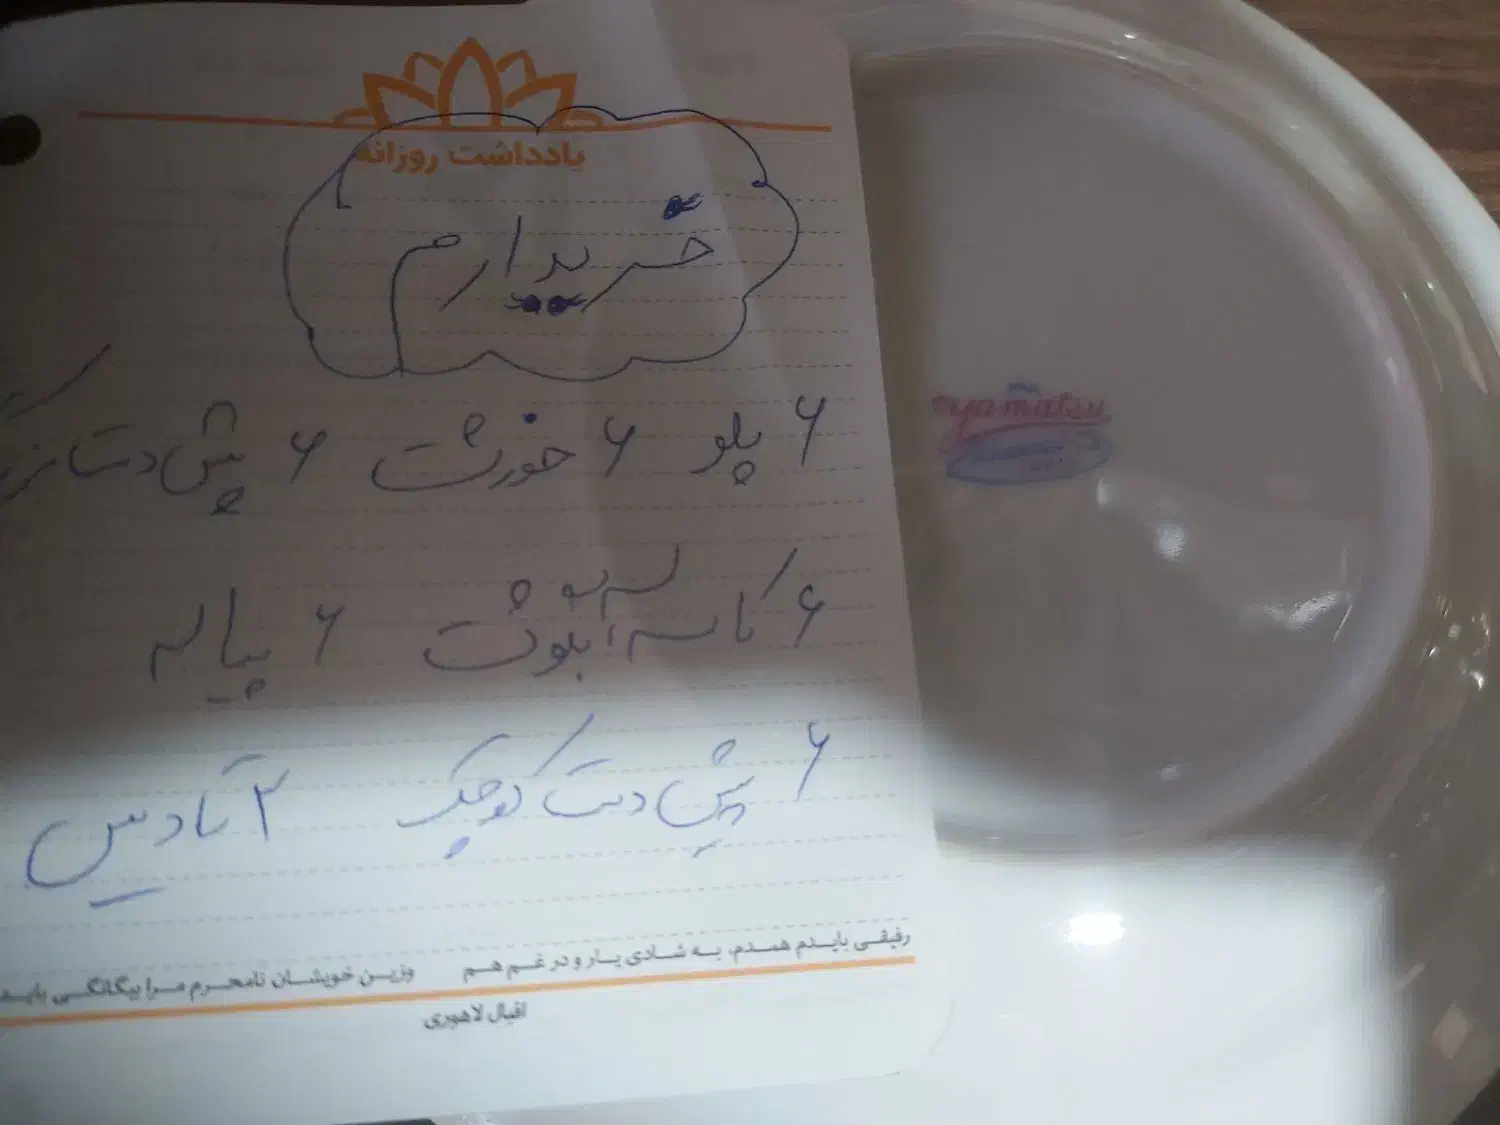 یادداشت روزانه
خریدارم
۶ پلو ۶ خورشت ۶ پیش دست بزرگ
۶ کاسه آبگوشت ۶ پیاله
۶ پیش دست کوچک ۲ تا دیس
رفیقی بایدم همدم، به شادی یار و در غم هم وزین خویشان نامحرم مرا بیگانگی باید
اقبال لاهوری
yamatsu